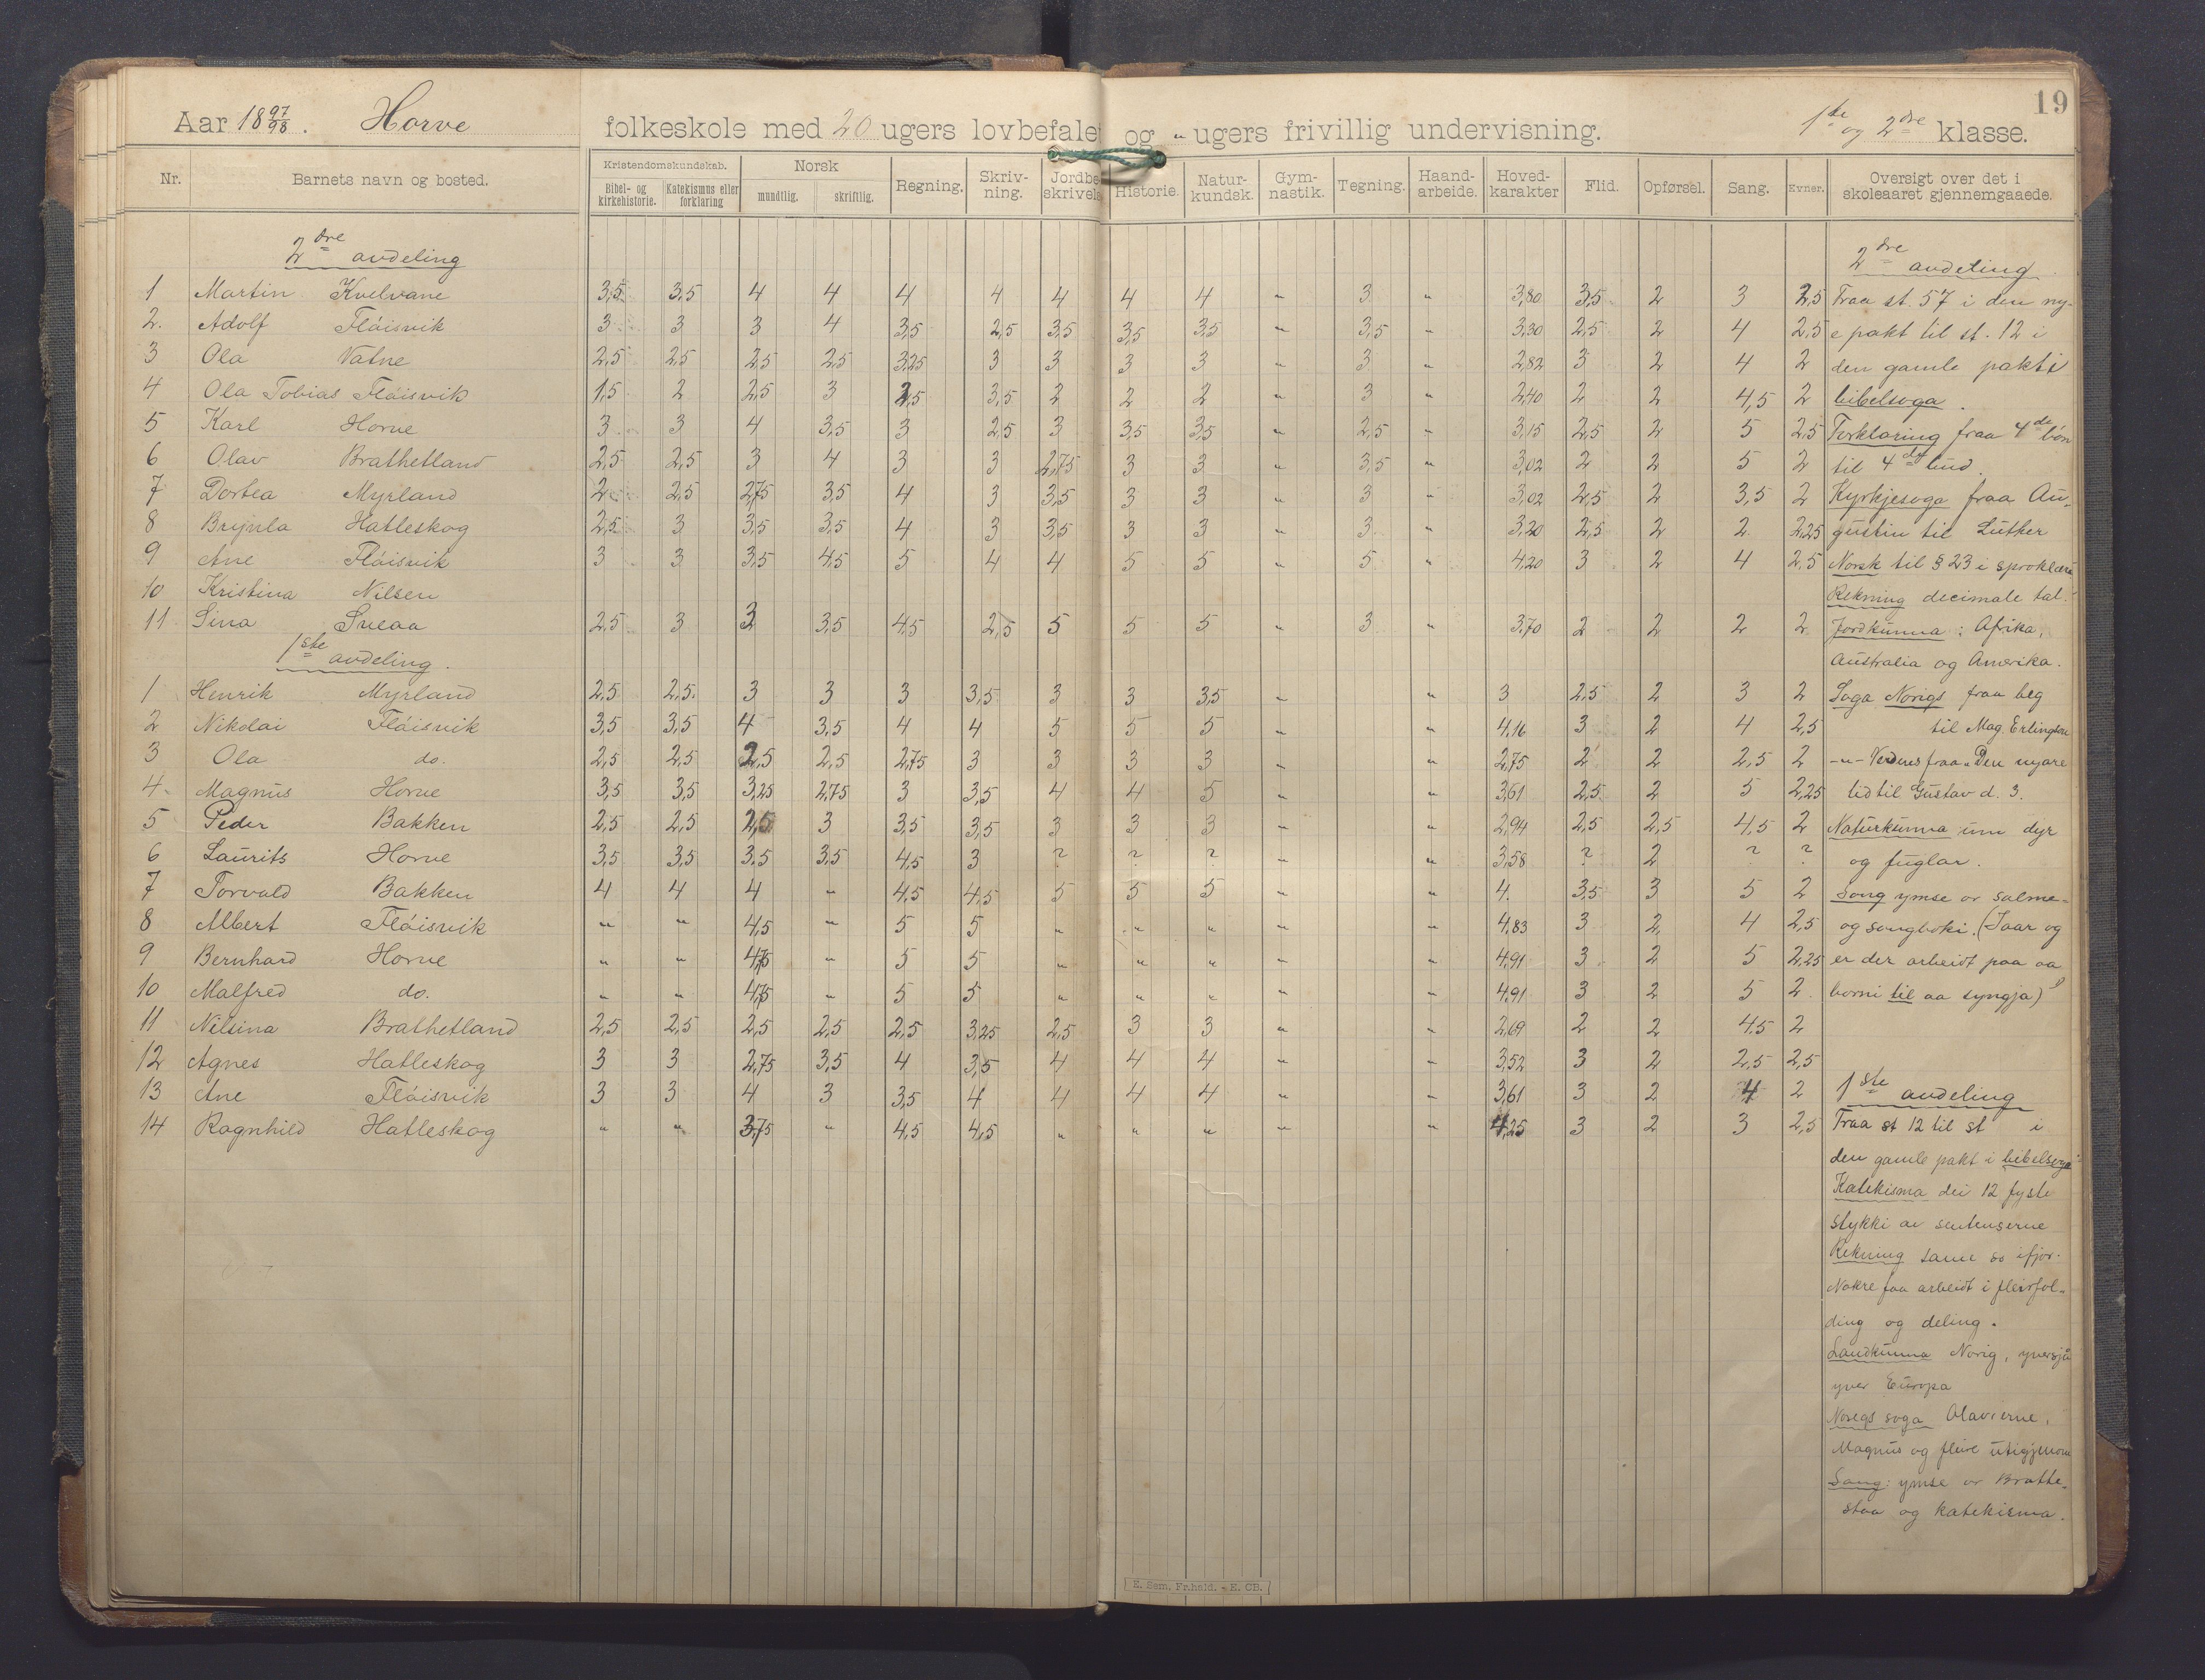 19
Aar 1897/98. Horve folkeskole med 20 ugers lovbefalet og " ugers frivillig undervisning. 1ste og 2dre klasse.
Nr. Barnets navn og bosted. Kristendomskundskab. Bibel- og kirkehistorie. Katekismus eller forklaring Norsk mundtlig. skriftlig. Regning. Skrivning. Jordbeskrivelse Historie. Naturkundsk. Gymnastik. Tegning. Haandarbeide. Hovedkarakter Flid. Opførsel. Sang. Evner. Oversigt over det i skoleaaret gjennemgaaede.
2dre avdeling
1 Martin Kvelvane 3,5 3,5 4 4 4 4 4 4 4 " 3 " 3,80 3,5 2 3 2,5
2. Adolf Flóisvik 3 3 3 4 3,5 2,5 3,5 3,5 3,5 " 3,5 " 3,30 2,5 2 4 2,5
3 Ola Vatne 2,5 2,5 2,5 2,5 3,25 3 3 3 3 " 3 " 2,82 3 2 4 2
4 Ola Tobias Flóisvik 1,5 2 2,5 3 2,5 3,5 2 2 2 " 3 " 2,40 2 2 4,5 2
5 Karl Horve 3 3 4 3,5 3 2,5 3 3,5 3,5 " 2,5 " 3,15 2,5 2 5 2,5
6 Olav Brathetland 2,5 2,5 3 4 3 3 2,75 3 3 " 3,5 " 3,02 2 2 5 2
7 Dortea Myrland 2 2,5 2,75 3,5 4 3 3,5 3 3 " 3 " 3,02 2,5 2 3,5 2
8 Brynla Hatleskog 2,5 3 3,5 3,5 4 3 3,5 3 3 " 3 " 3,20 2,5 2 2 2,25
9 Ane Flóisvik 3 3 3,5 4,5 5 4 4 5 5 " 5 " 4,20 3 2 4 2,5
10 Kristina Nilsen
11 Sina Sveaa 2,5 3 3 3,5 4,5 2,5 5 5 5 " 3 " 3,70 2 2 2 2
1ste avdeling.
1 Henrik Myrland 2,5 2,5 3 3 3 3,5 3 3 3,5 " " 3 2,5 2 3 2
2 Nikolai Flóisvik 3,5 3,5 4 3,5 4 4 5 5 5 " " 4,16 3 2 4 2,5
3 Ola do. 2,5 2,5 2,5 2,5 2,75 3 3 3 3 " " 2,75 2 2 2,5 2
4 Magnus Horve 3,5 3,5 3,25 2,75 3 3,5 4 4 5 " " 3,61 2,5 2 5 2,25
5 Peder Bakken 2,5 2,5 2,5 3 3,5 3,5 3 3 3 " " 2,94 2,5 2,5 4,5 2
6 Laurits Horve 3,5 3,5 3,5 3,5 4,5 3 ? ? ? " " 3,58 ? 2 ? ?
7 Torvald Bakken 4 4 4 " 4,5 4,5 5 5 5 " " 4. 3,5 3 5 2
8 Albert Flóisvik " " 4,5 " 5 5 " " " " " 4,83 3 2 4 2,5
9 Bernhard Horve " " 4,75 " 5 5 " " " " " 4,91 3 2 5 2,25
10 Malfred do. " " 4,75 " 5 5 " " " " " 4,91 3 2 5 2
11 Nilsina Brathetland 2,5 2,5 2,5 2,5 2,5 3,25 2,5 3 3 " " 2,69 2 2 4,5 2
12 Agnes Hatleskog 3 3 2,75 3,5 4 3,5 4 4 4 " " 3,52 3 2 2,5 2,5
13 Ane Flóisvik 3 3 4 3 3,5 4 4 4 4 " " 3,61 3 2 4 2
14 Ragnhild Hatleskog " " 3,75 " 4,5 4,5 " " " " " 4,25 3 2 3 2,5
2dre avdeling
Fraa st. 57 i den ny-
e pakt til st. 12 i
den gamle pakt i
bibelsoga.
Forklaring fraa 4de bón
til 4de bud.
Kyrkjesoga fraa Au-
gustin til Luther
Norsk til § 23 i sproklæra
Rekning decimale tal.
Jordkunna: Afrika,
Australia og Amerika.
Soga Norigs fraa beg
til Mag. Erlingson
-"- Verdens fraa "Den nyare
tid til Gustav d. 3.
Naturkunna um dyr
og fuglar.
Song ymse or salme-
og songboki. (Iaar og
er der arbeidt paa aa
borni til aa syngja)
1ste avdeling
Fraa st 12 til st i
den gamle pakt i bibelsoga
Katekisma dei 12 fyste
stykki av sentenserne
Rekning same so ifjor.
Nokre faa arbeidt i fleirfol-
ding og deling.
Landkunna Norig, yversju
yver Europa
Noregs soga Olaverne,
Magnus og fleire utigjenom
Song: ymse or Bratte-
staa og katekisma.
E. Sem, Fr.hald. - E. CB.